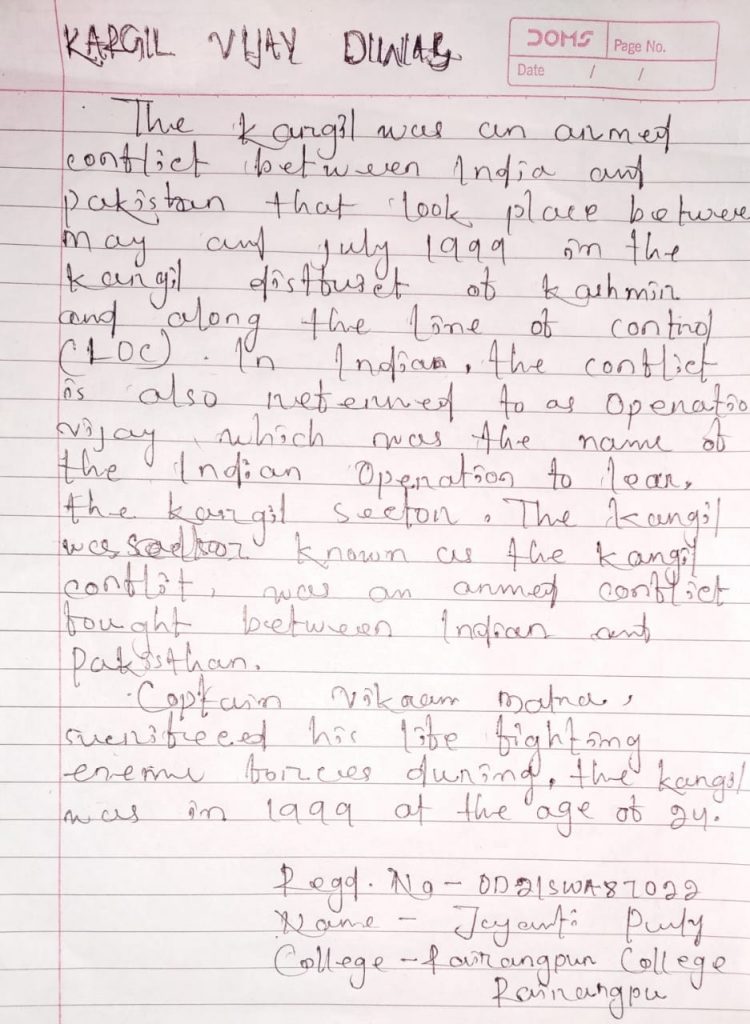 KARGIL VIJAY DIWAS
DOMS Page No.
Date / /
The kargil was an armed
conflict between India and
pakistan that look place betwee
may and july 1999 in the
kargil distburct of kashmir
and along the line of control
(LOC). In Indian, the conflict
is also referred to as Operatio
vijay, which was the name of
the Indian Operation to lear,
the kargil sector. The kargil
was known as the kargil
conflit, was an armed conflict
fought between Indian and
pakisthan.
Captain vikaam Batra,
sucrificeed his life fighting
enemi forcies during, the kargil
was in 1999 at the age of 24.
Regd. No - OD21SWA87022
Name - Jayanti Purty
College - Rairangpur College
Rairangpu